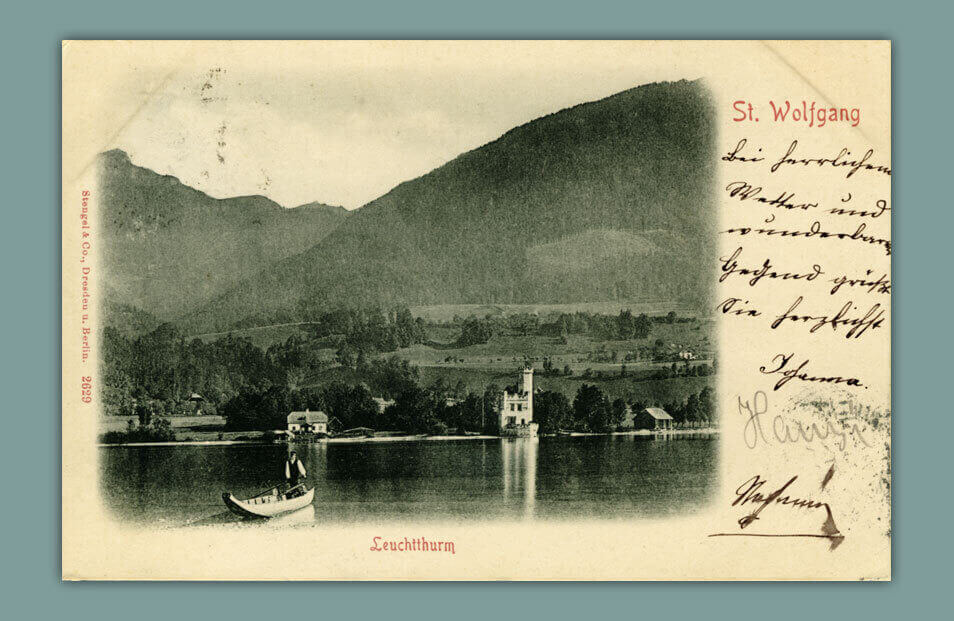 St. Wolfgang
Bei herrlichem
Wetter und
wunderbarer
Gegend grüßt
Sie herzlichst
Johanna.
Stengel & Co., Dresden u. Berlin. 2629
Leuchtthurm